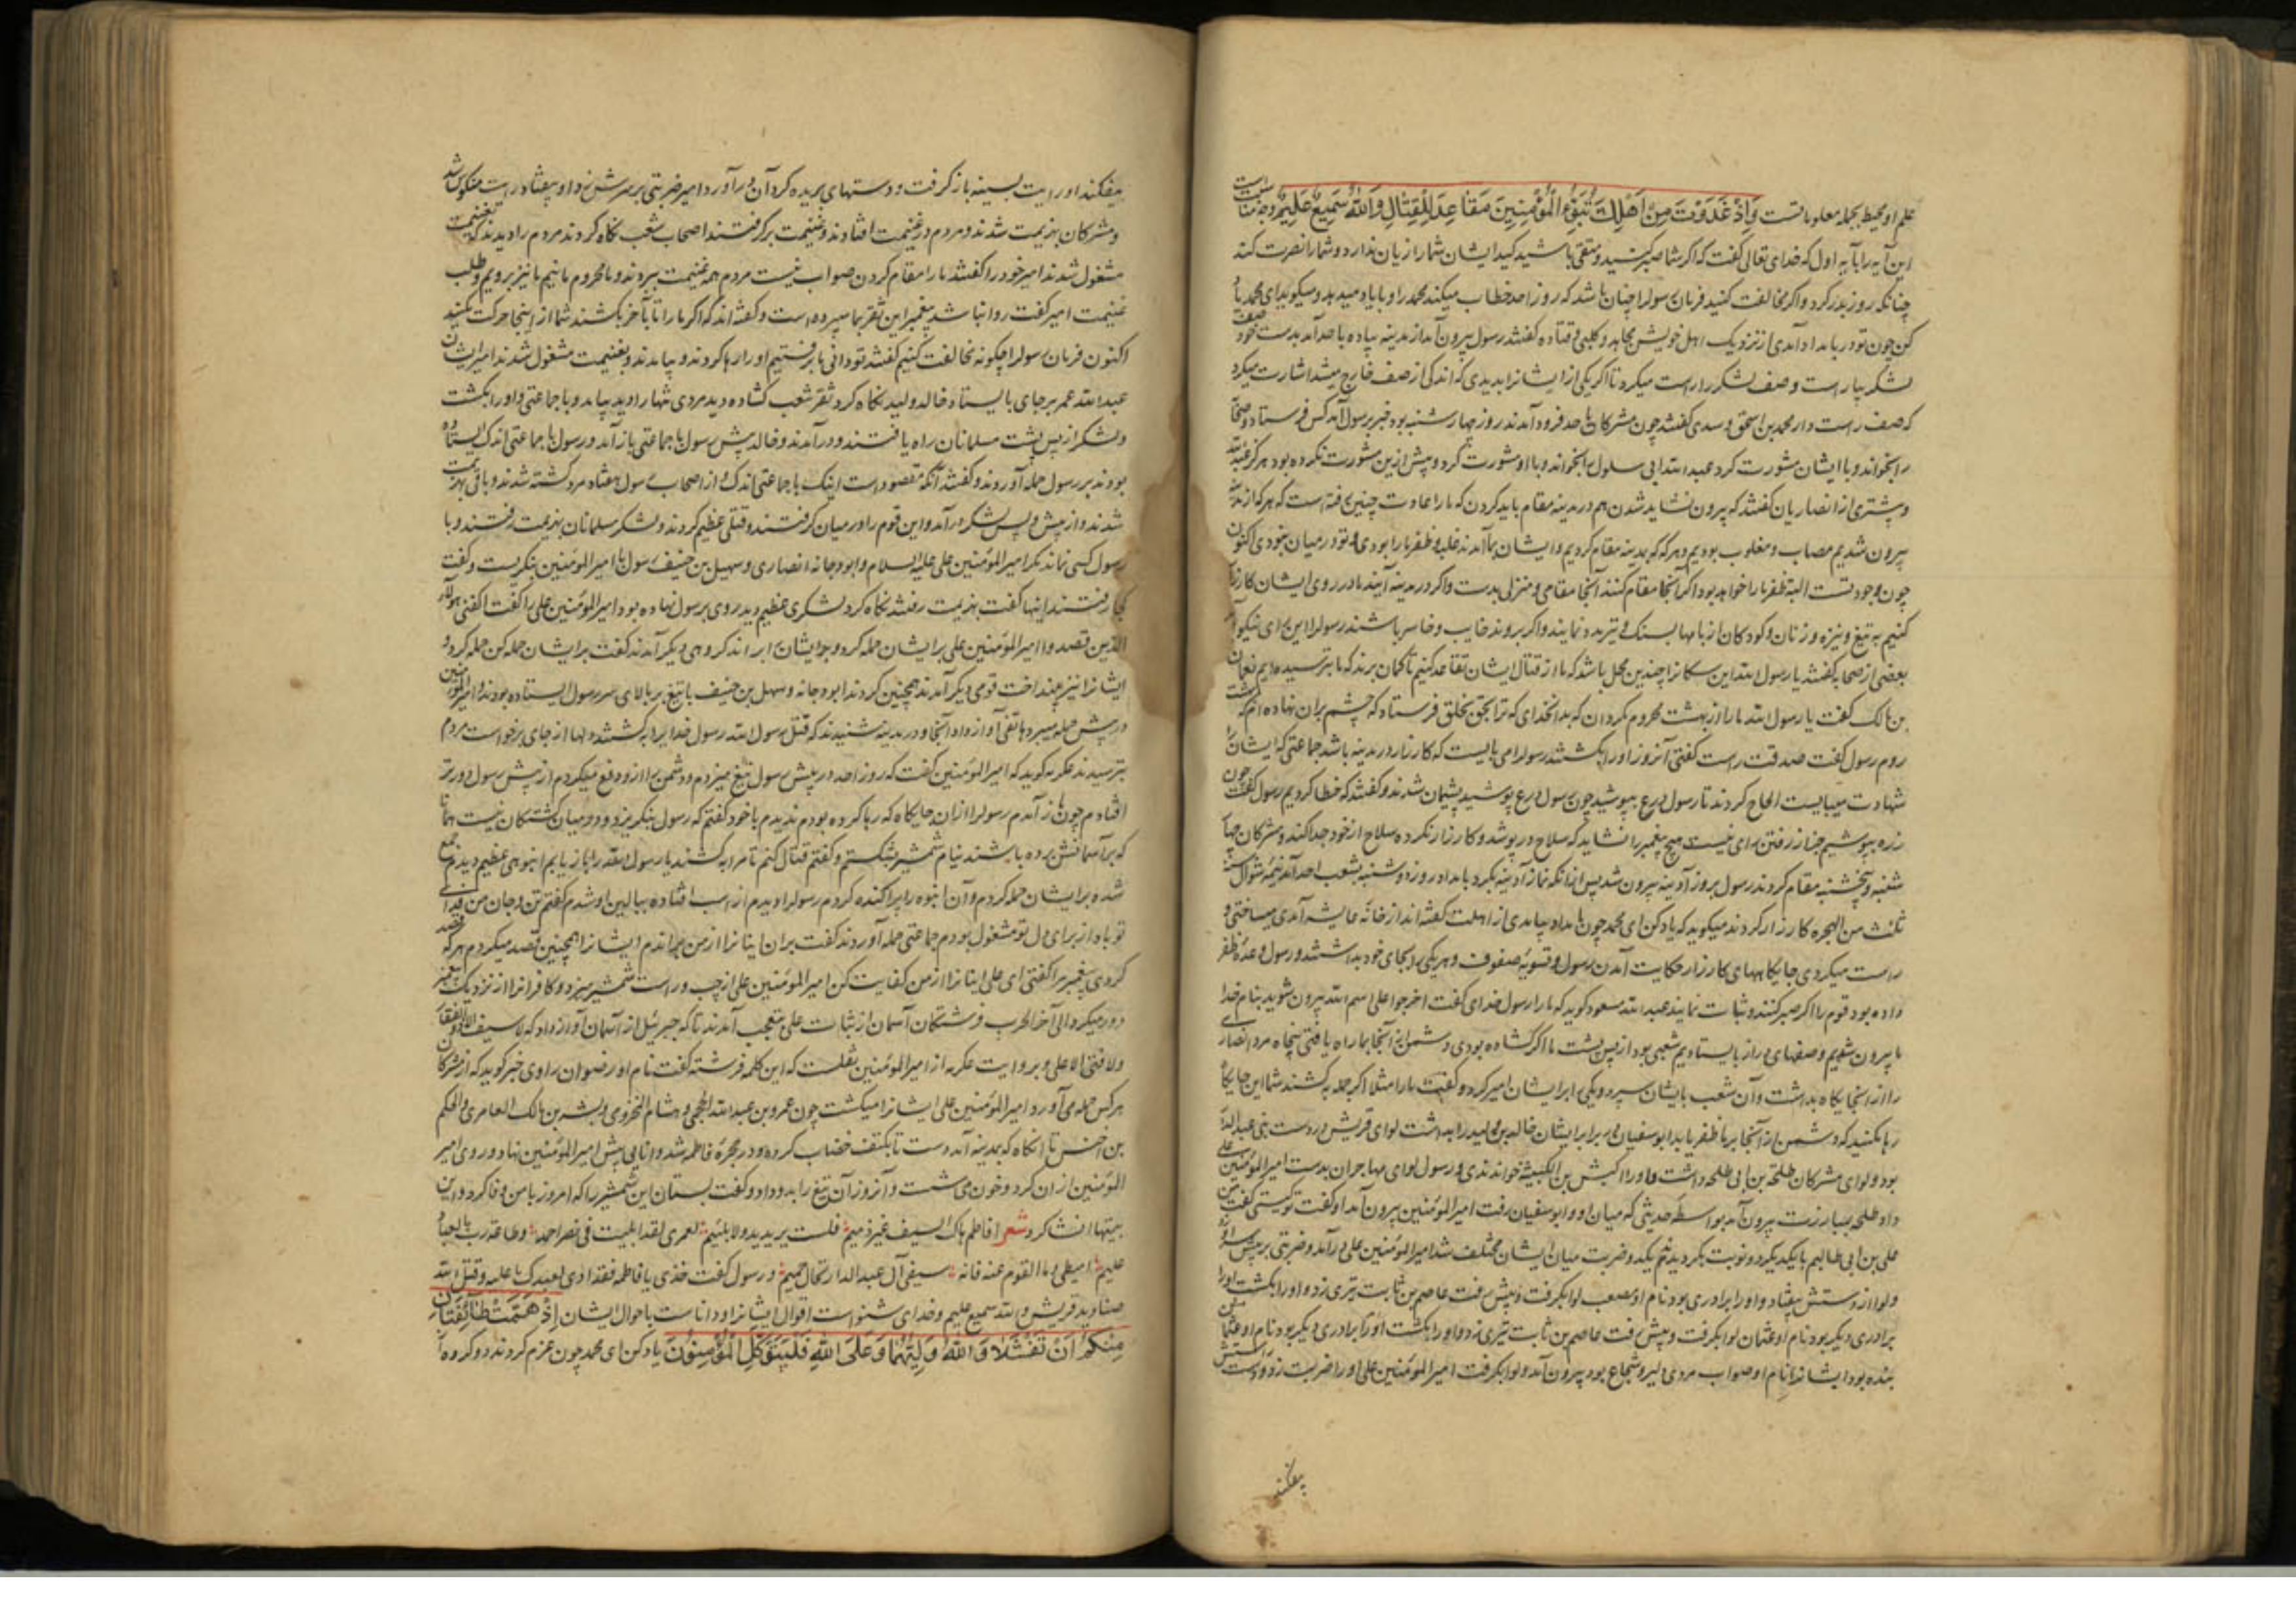 علم او محیط بجمله معلوماتست وَاِذْ غَدَوْتَ مِنْ اَهْلِكَ تُبَوِّئُ الْمُؤْمِنِینَ مَقَاعِدَ لِلْقِتَالِ وَاللّٰهُ سَمِیعٌ عَلِیمٌ وجه مناسبت
این آیه را بآیه اول که خدای تعالی گفت که اگر شما صبر کنید و متقی باشید کید ایشان شما را زیان ندارد و شما را نصرت کند
چنانکه روز بدر کرد و اگر مخالفت کنید فرمان رسول را چنان باشد که روز احد خطاب میکند محمد را و بایاد میدهد و میگوید ای محمد یاد
کن چون تو در بامداد آمدی از نزدیک اهل خویش مجاهد و کلبی و قتاده گفتند رسول بیرون آمد از مدینه پیاده باحد آمد بدست خود صف
لشکر بیاراست و صف لشکر راست میکرد تا اگر یکی از ایشانرا بدیدی که اندکی از صف خارج میشد اشارت میکرد
که صف راست دار محمد بن اسحق و سدی گفتند چون مشرکان باحد فرود آمدند روز چهارشنبه بود خبر برسول آمد کس فرستاد و صحابه
را بخواند و با ایشان مشورت کرد عبد الله ابی سلول را بخواند و با او مشورت کرد و پیش ازین مشورت نکرده بود هرگز عبد الله
و بیشتری از انصاریان گفتند که بیرون نشاید شدن هم در مدینه مقام باید کردن که ما را عادت چنین رفته است که هرگه از مدینه
بیرون شدیم مصاب و مغلوب بودیم و هرگه که بمدینه مقام کردیم و ایشان بما آمدند غلبه و ظفر ما را بودی و تو در میان نبودی اکنون
چون وجود تست البته ظفر ما را خواهد بود اگر آنجا مقام کنند آنجا مقامی و منزلی بدست و اگر در مدینه آیند ما در روی ایشان کارزار
کنیم به تیغ و نیزه و زنان و کودکان از بامها بسنگ و تیر مدد نمایند و اگر بروند خایب و خاسر باشند رسول را این رای نیکو آمد
بعضی از صحابه گفتند یا رسول الله این سگانرا چندین محل باشد که ما از قتال ایشان تقاعد کنیم تا گمان برند که ما بترسیده ایم نعمان
بن مالک گفت یا رسول الله ما را از بهشت محروم مگردان که بدانخدای که ترا بحق بخلق فرستاد که چشم بران نهاده ام که بهشت
روم رسول گفت صدقت راست گفتی آنروز او را بکشتند رسول را می بایست که کارزار در مدینه باشد جماعتی که ایشانرا
شهادت میبایست الحاح کردند تا رسول درع بپوشید چون رسول درع پوشید پشیمان شدند و گفتند که خطا کردیم رسول گفت چون
زره بپوشیم جز از رفتن رای نیست هیچ پیغمبر را نشاید که سلاح در پوشد و کارزار نکرده سلاح از خود جدا کند و مشرکان چهار
شنبه و پنجشنبه مقام کردند رسول بروز آدینه بیرون شد پس از آنکه نماز آدینه بکرد بامداد روز دوشنبه بشعب احد آمد نیمه شوال سنه
ثلث من الهجره کارزار کردند میگوید که یاد کن ای محمد چون بامداد بیامدی از اهلت گفته اند از خانه عایشه آمدی میساختی و
راست میکردی جایگاههای کارزار حکایت آمدن رسول و تسویه صفوف و هر یکی را بجای خود بداشتند و رسول وعده ظفر
داده بود قوم را اگر صبر کنند و ثبات نمایند عبد الله مسعود گوید که ما را رسول خدای گفت اخرجوا علی اسم الله بیرون شوید بنام خدا
ما بیرون شدیم و صفهای دراز بایستادیم شعبی بود از پس پشت ما اگر گشاده بودی دشمن از آنجا بما راه یافتی پنجاه مرد انصاری
را از آنجایگاه بداشت و آن شعب بایشان سپرد و یکی را بر ایشان امیر کرد و گفت ما را مثلا اگر جمله بکشند شما این جایگاه
رها مکنید که دشمن از آنجا بر ما ظفر یابد ابو سفیان در برابر ایشان خالد بن ولید را بداشت لوای قریش در دست بنی عبد الدار
بود و لوای مشرکان طلحة بن ابی طلحه داشت و او را کبش بن الکبیبه خواندندی و رسول لوای مهاجران بدست امیر المؤمنین علی
داد طلحه بمبارزت بیرون آمد بواسطه حدیثی که میان او و ابو سفیان رفت امیر المؤمنین بیرون آمد او گفت تو کیستی گفت من
علی بن ابی طالبم با یکدیگر دو نوبت بگردیدند و ضربت میان ایشان مختلف شد امیر المؤمنین علی درآمد و ضربتی بر پیش سر او زد
و لوا از دستش بیفتاد و او را برادری بود نام او مصعب لوا بگرفت و پیش رفت عاصم بن ثابت تیری زد و او را بکشت او را
برادری دیگر بود نام او عثمان لوا بگرفت و پیش رفت عاصم بن ثابت تیری زد و او را بکشت او را برادری دیگر بود نام او عثمان
بنده بود ایشانرا نام او صواب مردی دلیر و شجاع بود بیرون آمد و لوا بگرفت امیر المؤمنین علی او را ضربت زد و دست
بیفکند
بیفکند او رایت بسینه باز گرفت و دستهای بریده گرد آن درآورد امیر ضربتی بر سرش زد او بیفتاد رایت منکوس شد
و مشرکان بهزیمت شدند و مردم در غنیمت افتادند و غنیمت برگرفتند اصحاب شعب نگاه کردند مردم را دیدند که بغنیمت
مشغول شدند امیر خود را گفتند ما را مقام کردن صواب نیست مردم همه غنیمت ببردند و ما محروم مانیم ما نیز برویم و طلب
غنیمت امیر گفت روا نباشد پیغمبر این ثغر بما سپرده است و گفته اند که اگر ما را تا بآخر بکشند شما از اینجا حرکت مکنید
اکنون فرمان رسول را چگونه مخالفت کنیم گفتند تو دانی ما برفتیم او را رها کردند و بیامدند و بغنیمت مشغول شدند امیر ایشان
عبد الله عمر بر جای بایستاد خالد ولید نگاه کرد ثغر شعب گشاده دید مردی تنها را دید بیامد و با جماعتی و او را بکشت
و لشکر از پس پشت مسلمانان راه یافتند و درآمدند و خالد پیش رسول با جماعتی باز آمد و رسول با جماعتی اندک ایستاده
بودند بر رسول حمله آوردند و گفتند آنکه مقصود است اینک با جماعتی اندک و از اصحاب رسول هفتاد مرد کشته شدند و باقی بهزیمت
شدند و از پیش و پس لشکر درآمد و این قوم را در میان گرفتند و قتلی عظیم کردند و لشکر مسلمانان بهزیمت رفتند و با
رسول کسی نماند مگر امیر المؤمنین علی علیه السلام و ابو دجانه انصاری و سهیل بن حنیف رسول با امیر المؤمنین بنگریست و گفت
کجا رفتند اینها گفت بهزیمت رفتند نگاه کرد لشکری عظیم دید روی برسول نهاده بود امیر المؤمنین علی را گفت اکفنی هؤلاء
الذین قصدوا امیر المؤمنین علی بر ایشان حمله کرد و جمله ایشانرا براند گروهی دیگر آمدند گفت بر ایشان حمله کن حمله کرد و
ایشانرا نیز بینداخت قومی دیگر آمدند همچنین کردند ابو دجانه و سهل بن حنیف با تیغ بر بالای سر رسول ایستاده بودند و امیر المؤمنین
در پیش حمله میبرد هاتفی آواز داد آنجا و در مدینه شنیدند که قتل رسول الله رسول خدای را بکشتند دلها از جای برخواست مردم
بترسیدند عکرمه گوید که امیر المؤمنین گفت که روز احد در پیش رسول تیغ میزدم و دشمن را ازو دفع میکردم از پیش رسول دورتر
افتادم چون باز آمدم رسول را ازان جایگاه که رها کرده بودم ندیدم با خود گفتم که رسول بنگریزد و در میان کشتگان نیست همانا
که بر آسمانش برده باشند نیام شمشیر بشکستم و گفتم قتال کنم تا مرا بکشند یا رسول الله را باز یابم انبوهی عظیم دیدم جمع
شده بر ایشان حمله کردم و آن انبوه را پراکنده کردم رسول را دیدم از اسب افتاده ببالین او شدم گفتم تن و جان من فدای
تو باد از برای دل تو مشغول بودم جماعتی حمله آوردند گفت بران اینانرا از من براندم ایشانرا همچنین قصد میکردم هرکه قصد
کردی پیغمبر مرا گفتی ای علی اینانرا از من کفایت کن امیر المؤمنین علی از چپ و راست شمشیر میزد و کافرانرا از نزدیک پیغمبر
دور میکرد الی آخر الحرب فرشتگان آسمان از ثبات علی متعجب آمدند تا که جبرئیل از آسمان آواز داد که لا سیف الا ذو الفقار
و لا فتی الا علی و بروایت عکرمه از امیر المؤمنین بنقلست که این کلمه فرشته گفت نام او رضوان راوی خبر گوید که از مشرکان
هر کس حمله می آورد امیر المؤمنین علی ایشانرا میکشت چون عمرو بن عبد الله الجمحی و هشام المخزومی و بشر بن مالک العامری و الحکم
بن اخنس تا آنگاه که بمدینه آمد دست تا بکتف خضاب کرده و در حجره فاطمه شد و اناءی پیش امیر المؤمنین نهاد و روی امیر
المؤمنین ازان گرد و خون می شست و آنروز آن تیغ را بدو داد و گفت بستان این شمشیر را که امروز با من وفا کرد و این
بیتها انشا کرد شعر افاطم هاک السیف غیر ذمیم فلست برعدید ولا بلئیم لعمری لقد ابلیت فی نصر احمد وطاعة رب بالعباد
علیم امیطی دماء القوم عنه فانه سقی آل عبد الدار کاس حمیم و رسول گفت خذی یا فاطمه فقد ادی بعلک ما علیه وقتل الله
صنادید قریش والله سمیع علیم و خدای شنواست اقوال ایشانرا و داناست باحوال ایشان اِذْ هَمَّتْ طَآئِفَتَانِ
مِنْكُمْ اَنْ تَفْشَلَا وَاللّٰهُ وَلِیُّهُمَا وَعَلَى اللّٰهِ فَلْیَتَوَكَّلِ الْمُؤْمِنُونَ یاد کن ای محمد چون عزم کردند دو گروه از